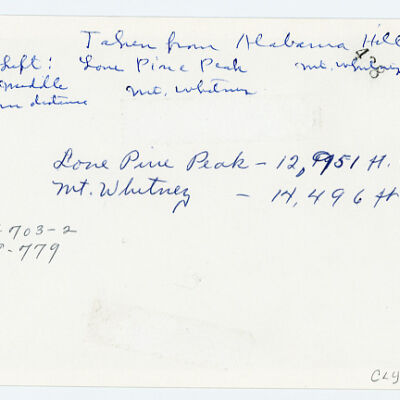 Taken from Alabama Hill
Left: Lone Pine Peak Mt. Whitney
middle
distance Mt. Whitney
Lone Pine Peak - 12,951 ft.
Mt. Whitney - 14,496 ft
703-2
-779
CLY